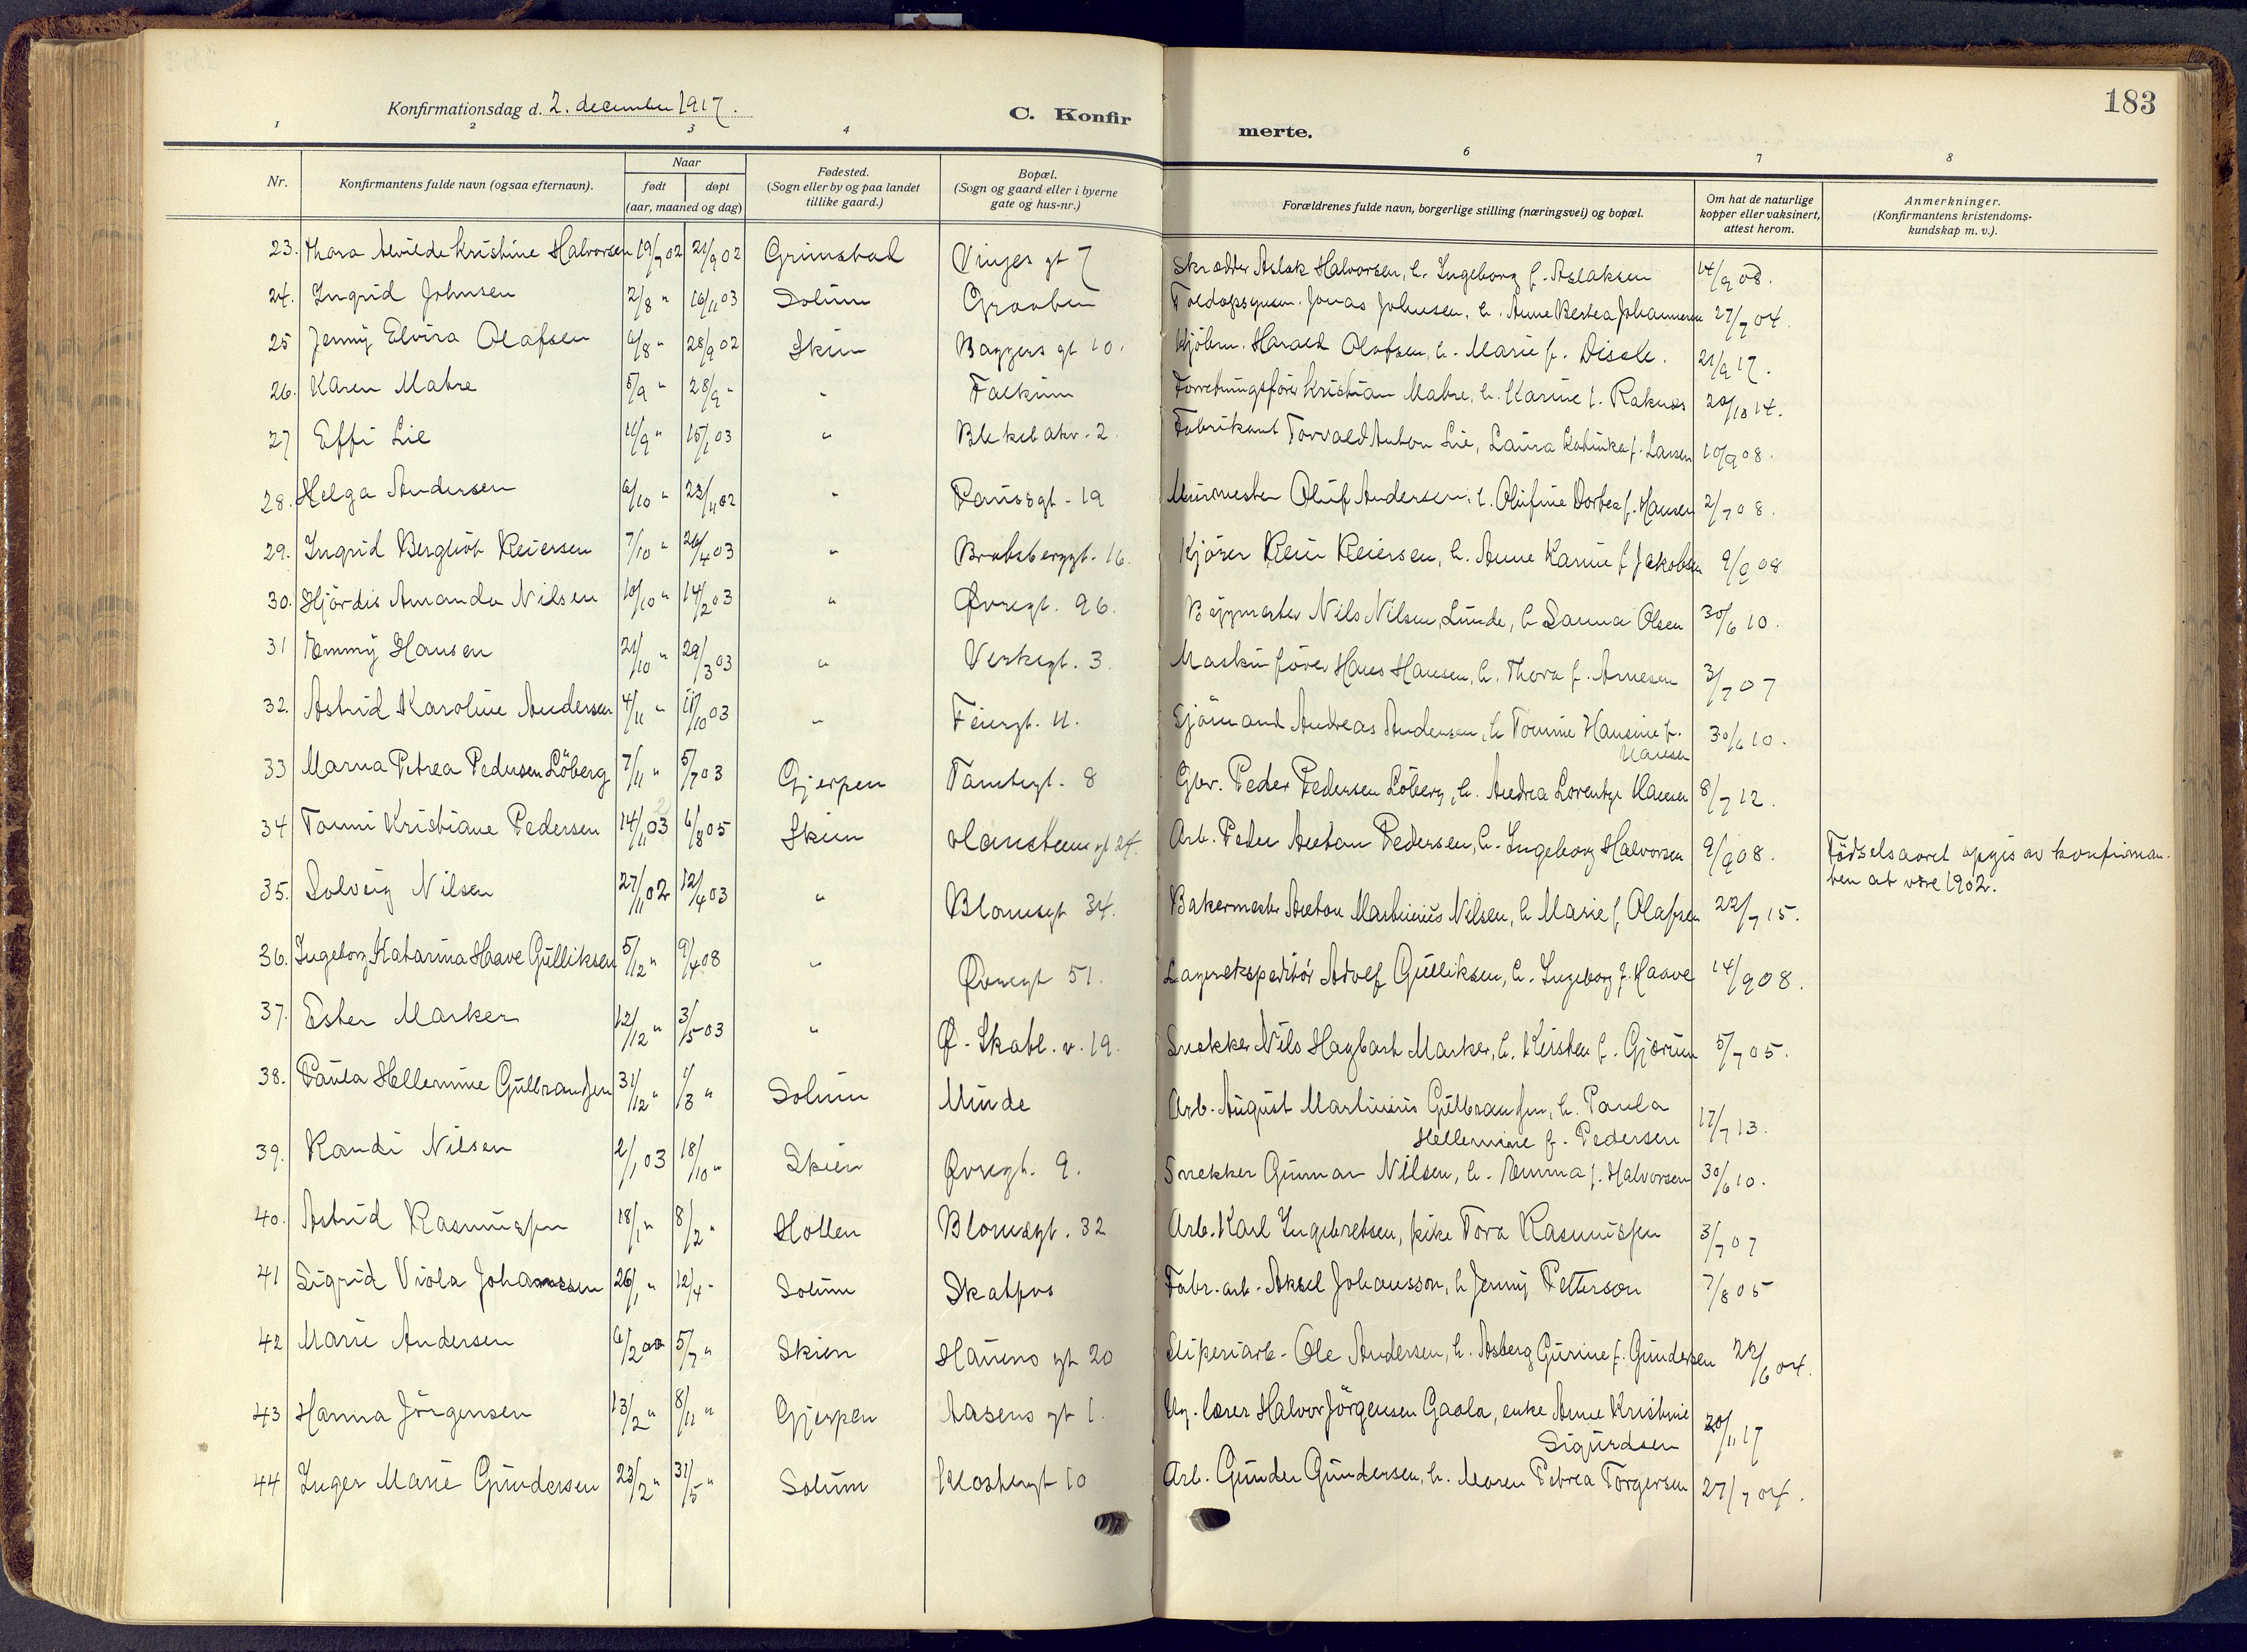 183
Konfirmationsdag d. 2. december 1917.
C. Konfir
merte.
1 2 3 4 6 7 8
Nr.
Konfirmantens fulde navn (ogsaa efternavn).
Naar
født døpt
(aar, maaned og dag)
Fødested.
(Sogn eller by og paa landet
tillike gaard.)
Bopæl.
(Sogn og gaard eller i byerne
gate og hus-nr.)
Forældrenes fulde navn, borgerlige stilling (næringsvei) og bopæl.
Om hat de naturlige
kopper eller vaksinert,
attest herom.
Anmerkninger.
(Konfirmantens kristendoms-
kundskap m. v.).
23. Thora Alvilde Kristine Halvorsen 19/7 02 21/9 02 Grimstad Vinjes gt 7 Skrædder Aslak Halvorsen, h. Ingeborg f. Aslaksen 14/9 08.
24. Ingrid Johnsen 2/8 " 16/11 03 Solum Graaben Toldopsynsm. Jonas Johnsen, h. Anne Bertea Johannesen 27/7 04.
25 Jenny Elvira Olafsen 6/8 " 28/9 02 Skien Baggers gt 10. Kjøbm. Harald Olafsen, h. Marie f. Diseth. 21/9 17.
26. Karen Mahre 5/9 " 28/9 " " Falkum Forretningsfører Kristian Mahre, h. Karine f. Raknes 20/10 14.
27 Effi Lie 11/9 " 15/1 03 " Blekebakv. 2. Fabrikant Torvald Anton Lie, Laura Katinka f. Larsen 10/9 08.
28. Helga Andersen 6/10 " 23/11 02 " Paussgt - 19 Murmester Oluf Andersen, h. Olufine Dortea f. Hansen 2/7 08.
29. Ingrid Bergliot Reiersen 7/10 " 26/4 03 " Bratsberggt. 16. Kjører Reier Reiersen, h. Anne Karine f. Jakobsen 9/9 08
30. Hjørdis Amanda Nilsen 10/10 " 14/2 03 " Øvregt. 96. Byggmester Nils Nilsen, Lunde, h Sanna Olsen 30/6 10.
31 Emmy Hansen 21/10 " 29/3 03 " Verksgt. 3. Maskinfører Hans Hansen, h. Thora f. Arnesen 3/7 07
32. Astrid Karoline Andersen 4/11 " 11/10 03 " Feiergt. 11. Sjømand Andreas Andersen, h Tomine Hansine f. 30/6 10.
Hansen
33 Marna Petrea Pedersen Löberg 7/11 " 5/7 03 Gjerpen Tamtegt. 8 Gbr. Peder Pedersen Löberg, h. Andrea Lorentze Hansen 8/7 12.
34 Tomni Kristiane Pedersen 14/11 03 6/8 05 Skien Hansteens gt 24. Arb. Peder Anton Pedersen, h. Ingeborg Halvorsen 9/9 08. Fødselsaaret opgis av konfirman-
ten at være 1902.
35. Solveig Nilsen 27/11 02 12/4 03 " Blomsgt 34. Bakermester Anton Martinius Nilsen, h Marie f Olafsen 22/7 15.
36. Ingeborg Katarina Haave Gulliksen 5/12 " 9/4 08 " Øvregt 51. Lagerekspeditör Adolf Gulliksen, h. Ingeborg f. Haave 14/9 08.
37. Ester Marker 12/12 " 3/5 03 " Ø. Skotl. v. 19. Snekker Nils Hagbart Marker, h. Kirsten f. Gjerum 5/7 05.
38. Paula Hellemine Gulbrandsen 31/12 " 1/3 " Solum Munde Arb. August Martinius Gulbrandsen, h. Paula 17/7 13.
Hellemine f. Pedersen
39. Randi Nilsen 2/1 03 18/10 " Skien Øvregt. 9. Snekker Gunnar Nilsen, h. Emma f. Halvorsen 30/6 10.
40. Astrid Rasmussen 18/1 " 8/2 " Hollen Blomsgt. 32 Arb. Karl Ingebretsen, pike Tora Rasmussen 3/7 07
41 Sigrid Viola Johannesen 26/1 " 12/4 " Solum Skatfos Fabr.arb. Aksel Johansson, h Jenny Petterson 7/8 05
42 Marie Andersen 6/2 5/7 " Skien Hauens gt 20 Sliperiarb. Ole Andersen, h. Asberg Gurine f. Gundersen 22/6 04.
43 Hanna Jörgensen 13/2 " 8/11 " Gjerpen Aasens gt 1. Ug. lærer Halvor Jörgensen Gaala, enke Anne Kristine 20/11 17
Sigurdsen
44 Inger Marie Gundersen 23/2 " 31/5 " Solum Klostergt 10 Arb. Gunder Gundersen, h. Maren Petrea Torgersen 27/7 04.